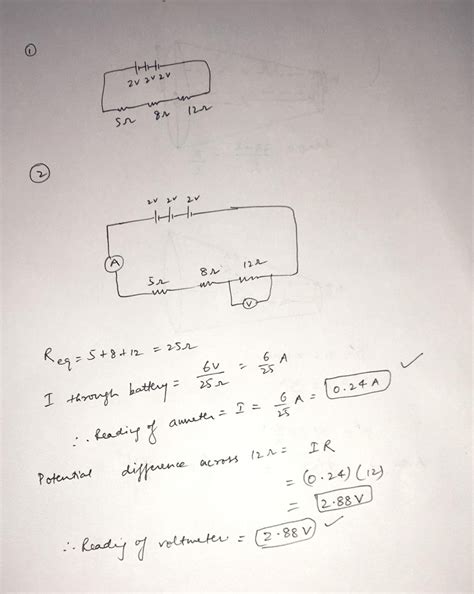 ①
2V 2V 2V
5Ω 8Ω 12Ω
②
2V 2V 2V
A
5Ω 8Ω 12Ω
V
Req = 5+8+12 = 25Ω
I through battery = 6V/25Ω = 6/25 A
∴ Reading of ammeter = I = 6/25 A = 0.24 A ✓
Potential difference across 12Ω = IR
= (0.24)(12)
= 2.88 V
∴ Reading of voltmeter = 2.88 V ✓